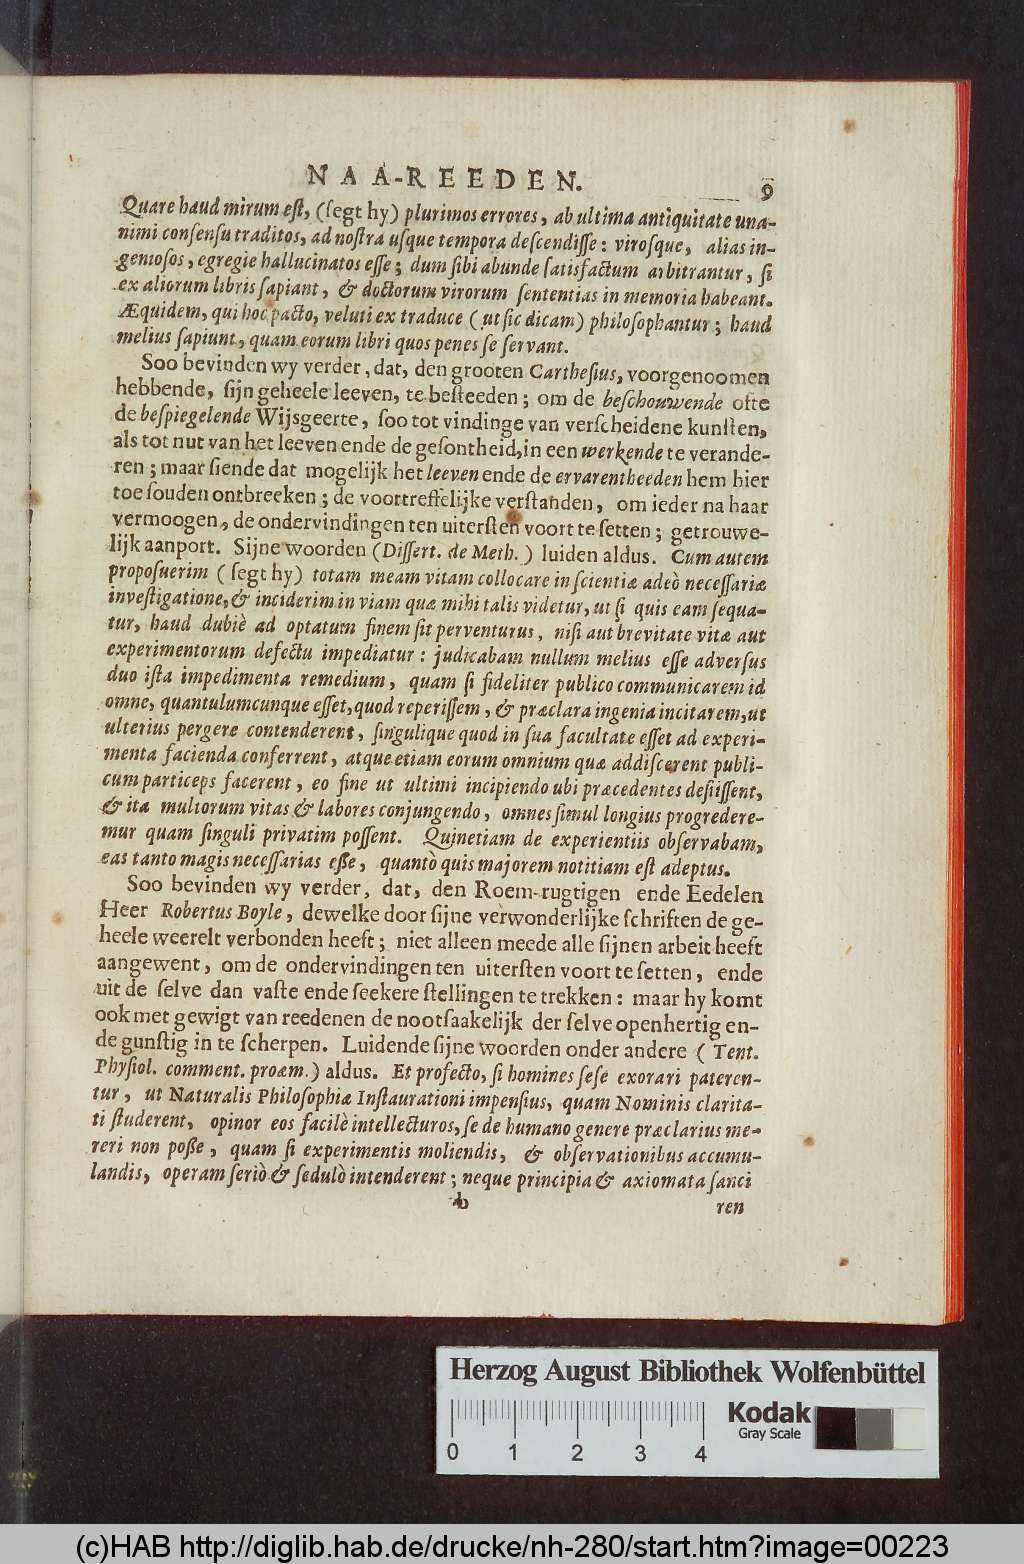 NAA-REEDEN. 9
Quare haud mirum eſt, (ſegt hy) plurimos errores, ab ultima antiquitate una-
nimi conſenſu traditos, ad noſtra uſque tempora deſcendiſſe: viroſque, alias in-
genioſos, egregie hallucinatos eſſe; dum ſibi abunde ſatisfactum arbitrantur, ſi
ex aliorum libris ſapiant, & doctorum virorum ſententias in memoria habeant.
Æquidem, qui hoc pacto, veluti ex traduce (ut ſic dicam) philoſophantur; haud
melius ſapiunt, quam eorum libri quos penes ſe ſervant.
Soo bevinden wy verder, dat, den grooten Cartheſius, voorgenoomen
hebbende, ſijn geheele leeven, te beſteeden; om de beſchouwende ofte
de beſpiegelende Wijsgeerte, ſoo tot vindinge van verſcheidene kunſten,
als tot nut van het leeven ende de geſontheid, in een werkende te verande-
ren; maar ſiende dat mogelijk het leeven ende de ervarentheeden hem hier
toe ſouden ontbreeken; de voortreffelijke verſtanden, om ieder na haar
vermoogen, de ondervindingen ten uiterſten voort te ſetten; getrouwe-
lijk aanport. Sijne woorden (Diſſert. de Meth.) luiden aldus. Cum autem
propoſuerim (ſegt hy) totam meam vitam collocare in ſcientiæ adeò neceſſariæ
inveſtigatione, & inciderim in viam quæ mihi talis videtur, ut ſi quis eam ſequa-
tur, haud dubiè ad optatum finem ſit perventurus, niſi aut brevitate vitæ aut
experimentorum defectu impediatur: judicabam nullum melius eſſe adverſus
duo iſta impedimenta remedium, quam ſi fideliter publico communicarem id
omne, quantulumcunque eſſet, quod reperiſſem, & præclara ingenia incitarem, ut
ulterius pergere contenderent, ſingulique quod in ſua facultate eſſet ad experi-
menta facienda conferrent, atque etiam eorum omnium quæ addiſcerent publi-
cum particeps facerent, eo fine ut ultimi incipiendo ubi præcedentes deſiiſſent,
& ita multorum vitas & labores conjungendo, omnes ſimul longius progredere-
mur quam ſinguli privatim poſſent. Quinetiam de experientiis obſervabam,
eas tanto magis neceſſarias eſſe, quantò quis majorem notitiam eſt adeptus.
Soo bevinden wy verder, dat, den Roem-rugtigen ende Eedelen
Heer Robertus Boyle, dewelke door ſijne verwonderlijke ſchriften de ge-
heele weerelt verbonden heeft; niet alleen meede alle ſijnen arbeit heeft
aangewent, om de ondervindingen ten uiterſten voort te ſetten, ende
uit de ſelve dan vaſte ende ſeekere ſtellingen te trekken: maar hy komt
ook met gewigt van reedenen de nootſaakelijk der ſelve openhertig en-
de gunſtig in te ſcherpen. Luidende ſijne woorden onder andere (Tent.
Phyſiol. comment. proæm.) aldus. Et profecto, ſi homines ſeſe exorari pateren-
tur, ut Naturalis Philoſophiæ Inſtaurationi impenſius, quam Nominis clarita-
ti ſtuderent, opinor eos facilè intellecturos, ſe de humano genere præclarius me-
reri non poße, quam ſi experimentis moliendis, & obſervationibus accumu-
landis, operam ſeriò & ſedulò intenderent; neque principia & axiomata ſanci
b ren
Herzog August Bibliothek Wolfenbüttel
Kodak
Gray Scale
0 1 2 3 4
(c)HAB http://diglib.hab.de/drucke/nh-280/start.htm?image=00223